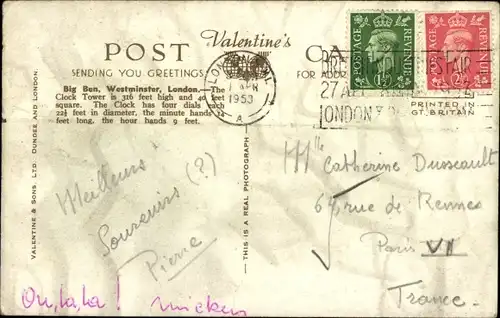 POST
Valentine's
CA
SENDING YOU GREETINGS
FOR ADDR
Big Ben, Westminster, London. The
Clock Tower is 316 feet high and 40 feet
square. The Clock has four dials each
22½ feet in diameter, the minute hands 14
feet long, the hour hands 9 feet.
VALENTINE & SONS, LTD. DUNDEE AND LONDON.
THIS IS A REAL PHOTOGRAPH
1950
A
POSTAGE
REVENUE
POSTAGE
REVENUE
LONDON
PRINTED IN
GT. BRITAIN
Meilleurs
Souvenirs (?)
Pierre
Ou, la, la !
Mlle Catherine Dusseault
rue de Rennes
Paris VI
France